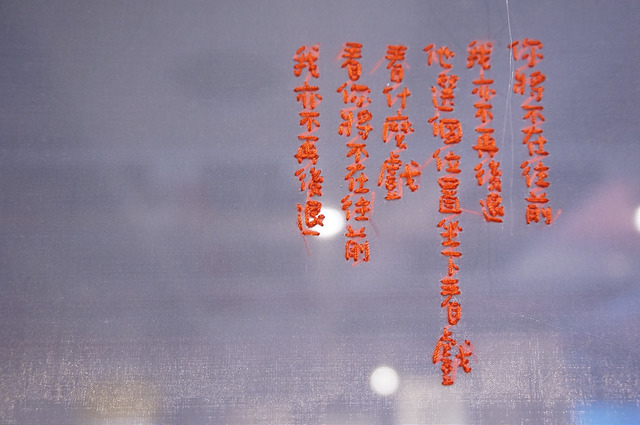 你將不在往前
我亦不再後退
他選個位置坐下看戲
看什麼戲
看你將不在往前
我亦不再後退